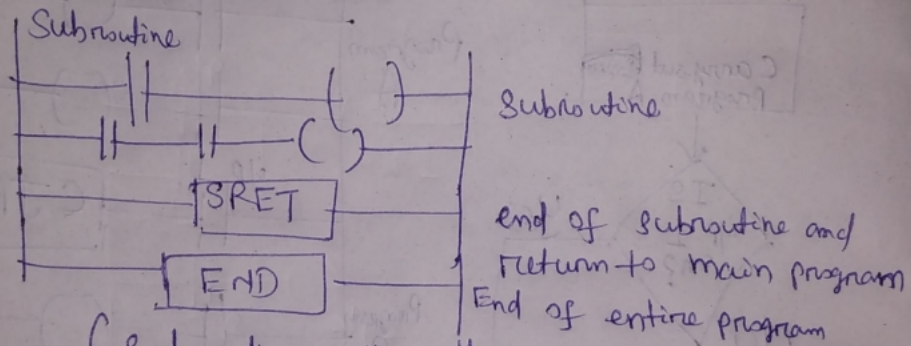 Subroutine
Subroutine
SRET
end of subroutine and
return to main program
END
End of entire program